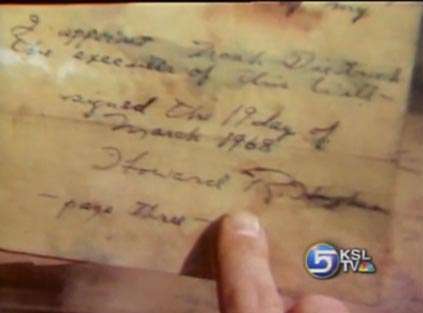 my
I appoint Noah Dietrich
the executer of this will -
signed the 19 day of
March 1968
Howard R. Hughes
- page three -
5 KSL
TV